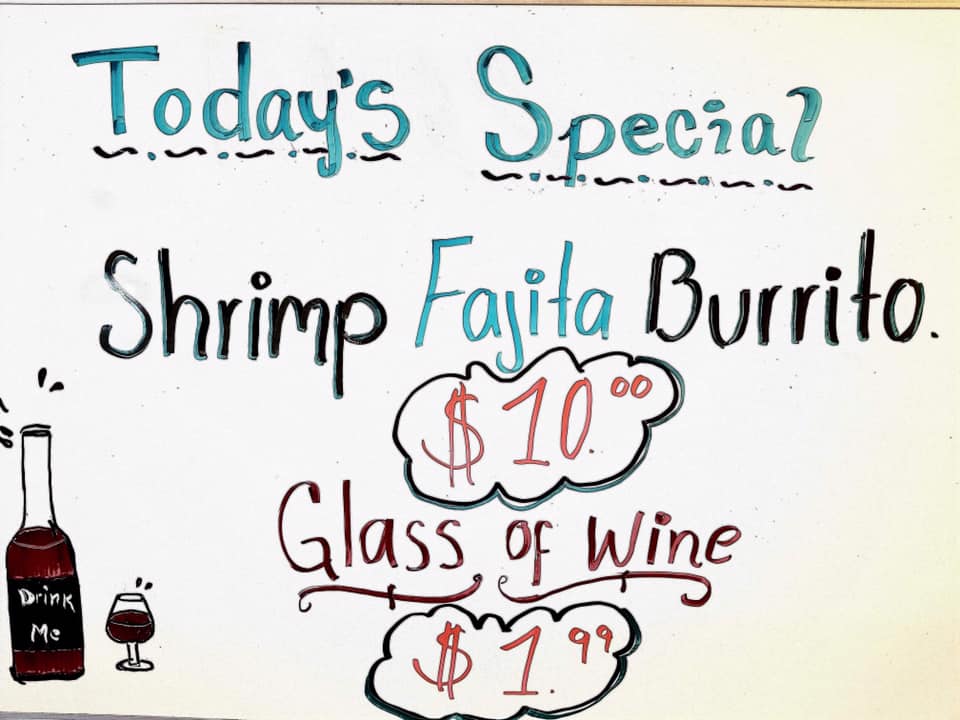 Today's Special
Shrimp Fajita Burrito.
$10.00
Glass of Wine
$1.99
Drink
Me